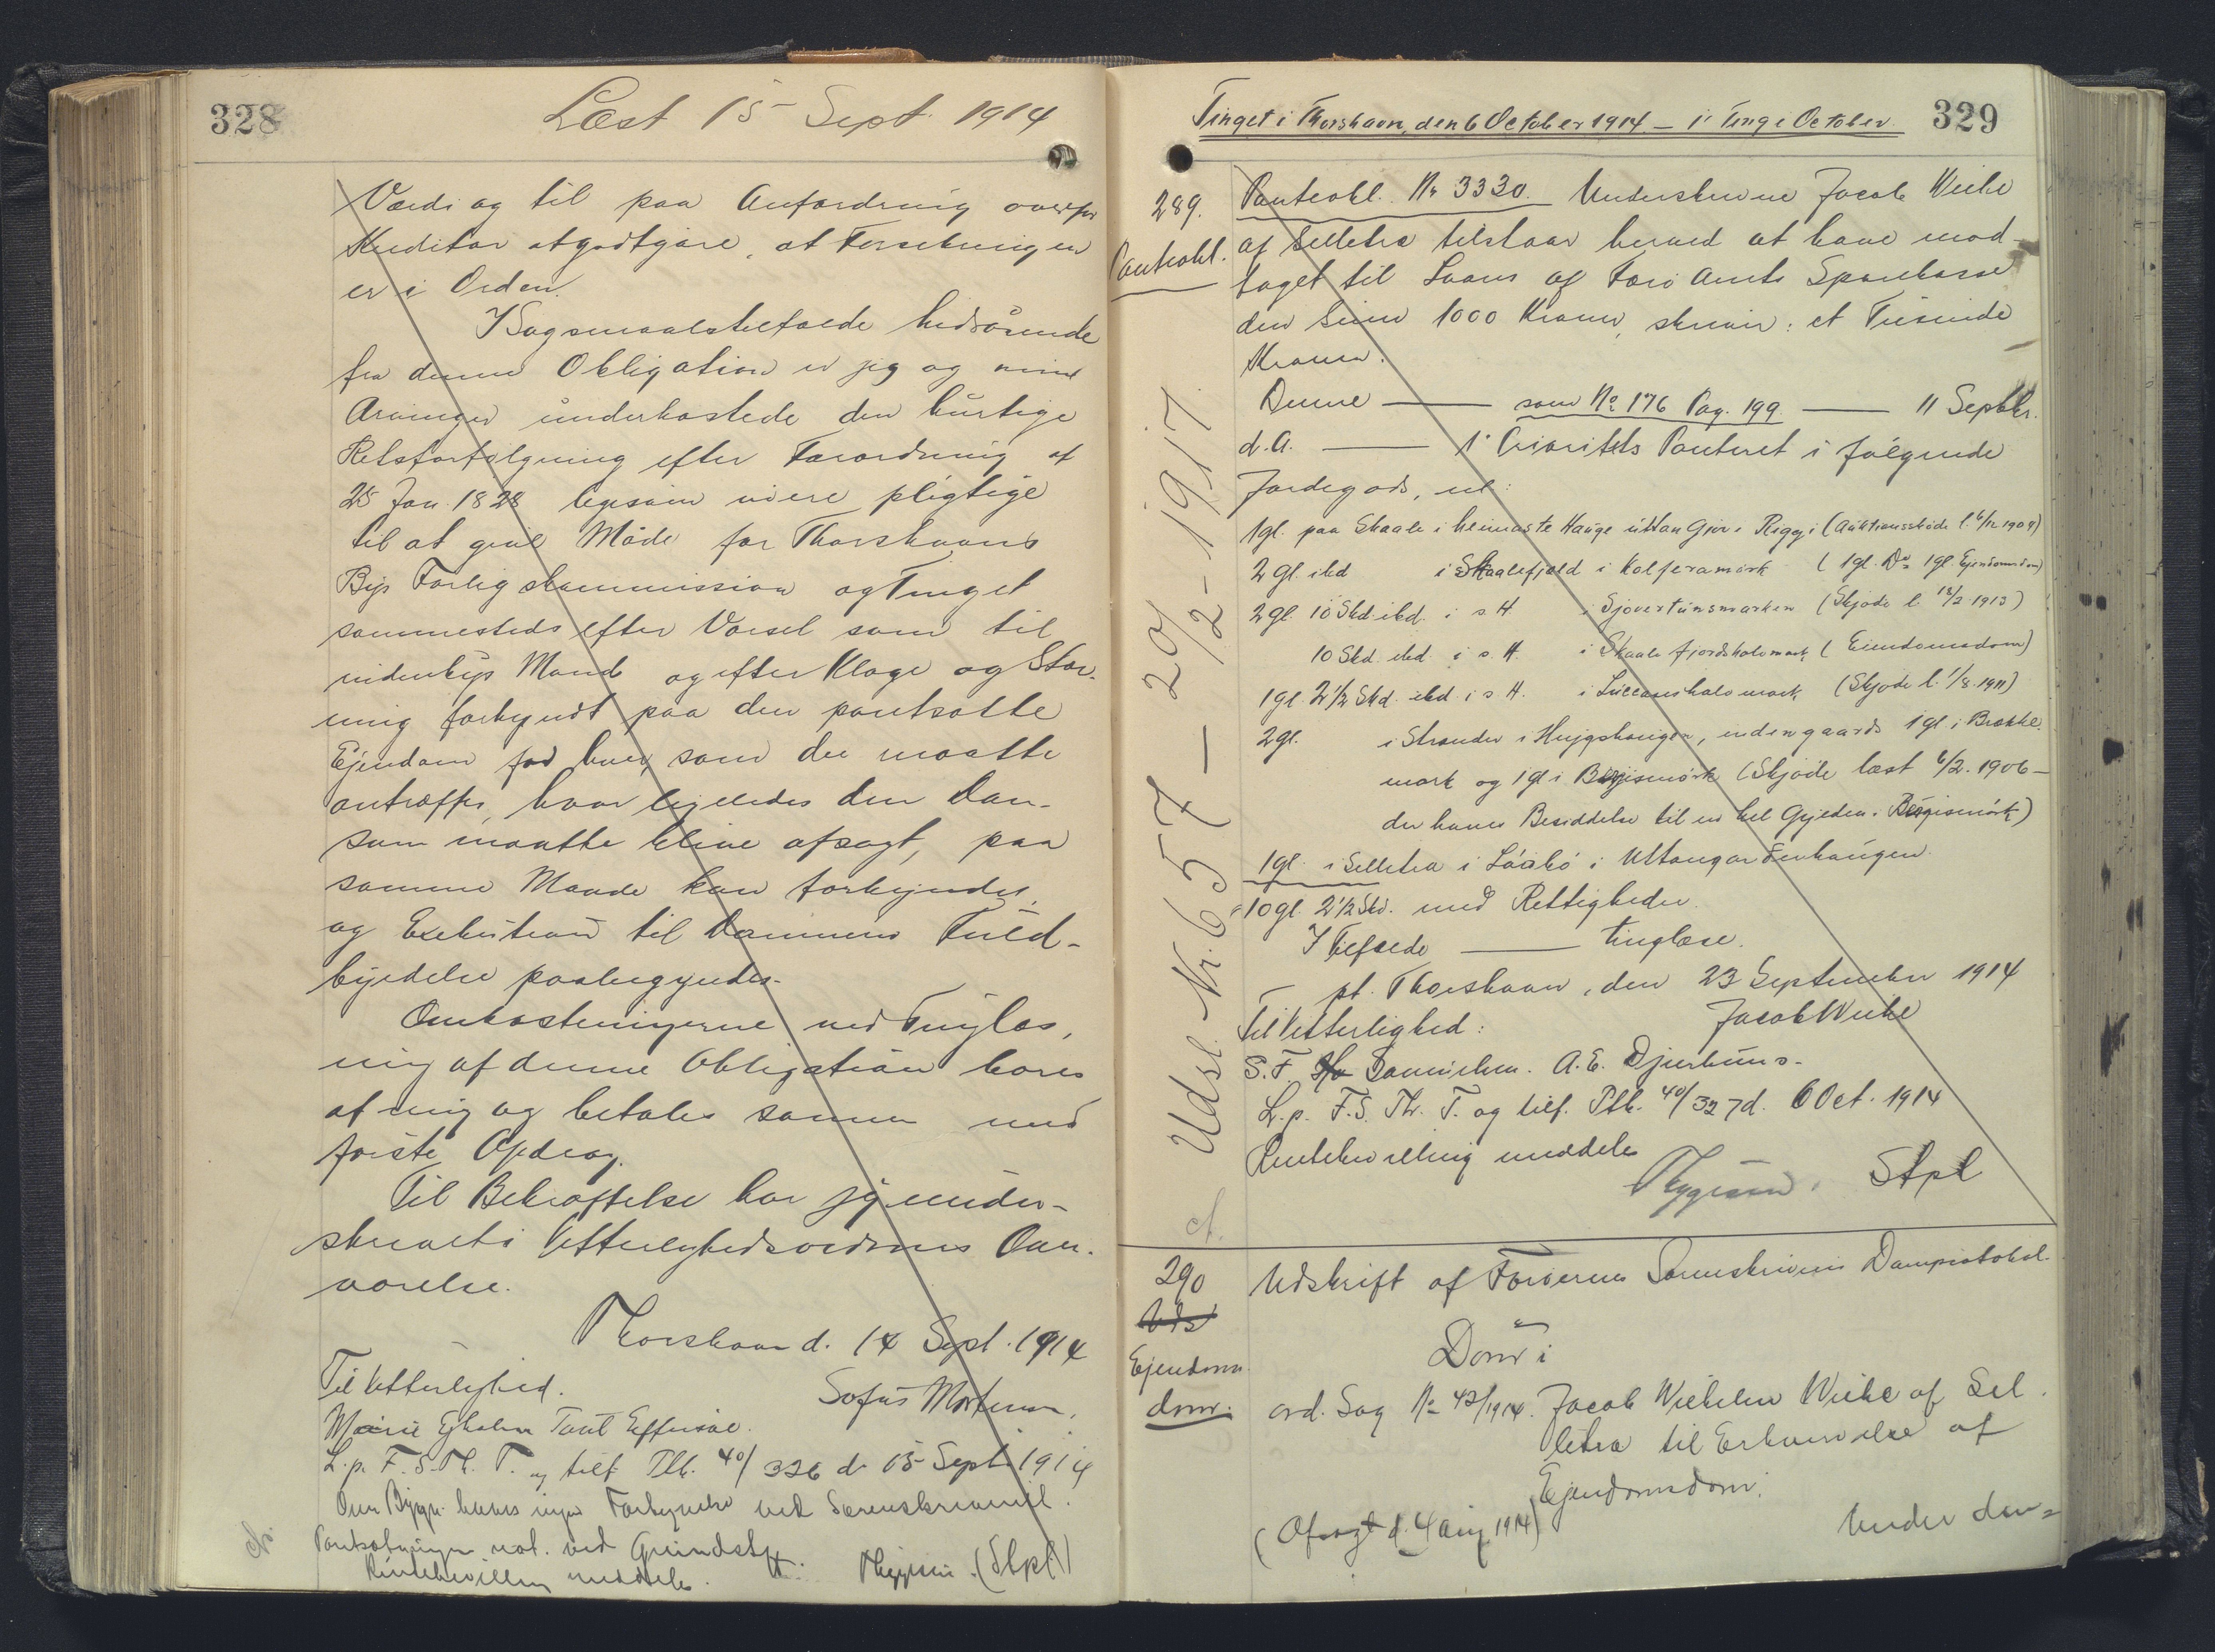 328
Læst 15 Sept. 1914
Værdi og til paa Anfordring overfor
Kreditor at godtgøre, at Forsikringen
er i Orden.
I Søgsmaalstilfælde hidrørende
fra denne Obligation er jeg og mine
Arvinger underkastede den hurtige
Retsforfølgning efter Forordning af
25 Jan. 1828 ligesom vi ere pligtige
til at give Møde for Thorshavns
Bys Forligskommission og Tinget
sammesteds efter Varsel som til
indenbys Mand og efter Klage og Stæv-
ning forkyndt paa den pantsatte
Ejendom for hver, som der maatte
antræffes, hvor ligeledes den Dom
som maatte blive afsagt, paa
samme Maade kan forkyndes,
og Exekution til Dommens Fuld-
byrdelse paabegyndes.
Omkostningerne ved Tinglæs-
ning af denne Obligation bæres
af mig og betales sammen med
første Afdrag.
Til Bekræftelse har jeg under-
skrevet i Vitterlighedsvidners Over-
værelse.
Thorshavn d. 14 Sept. 1914
Til Vitterlighed.
Sofus Mortensen.
Marie
L. p. F. S. Th. T. og tilf. Ptb. 40/326 d. 15 Sept. 1914
Om Bygn. haves ingen ved Sorenskriveriet.
Pantsætningen not. ved Grundst.
Rentebevilling meddeles. (Stpl.)
Tinget i Thorshavn, den 6 October 1914 – 1' Ting i October
329
289.
Panteobl.
Panteobl. Nr 3330. Underskrevne Jacob Weihe
af Selletræ tilstaar herved at have mod-
taget til Laans af Færø Amts Sparekasse
den Sum 1000 Kroner, skriver: et Tusinde
Kroner.
Denne — som No 176 Pag. 199 — 11 Septbr.
d.A. — 1' Prioritets Panteret i følgende
Jordegods, nl:
1 gl. paa Skaale i heimaste Hauge uttan Gjør i Riggi (Auktionsskøde l. 6/12 1904)
2 gl. ibd i Skaalefjæld i Kolferamørk (1 gl. Do 1 gl. Ejendomsdom)
2 gl. 10 Skd. ibd. i s. H. i Sjovertunsmarken (Skjøde l. 18/2 1913)
10 Skd. ibd i s. H. i Skaale fjordshalemark (Eiendomsdom)
1 gl. 2 1/2 Skd. ibd i s. H. i mark (Skjøde l. 1/8. 1911)
2 gl. i Strander i Hujgshaugen, indengaards 1 gl. i Brekke-
mark og 1 gl. i Bøgismørk (Skjøde læst 6/2. 1906 –
der haves Besiddelse til en hel Gylden i Bøgismørk)
1 gl. i Selletræ i i Uttangardenhaugen.
10 gl. 2 1/2 Skd. med Rettigheder.
I Tilfælde — tinglæse.
pt. Thorshavn, den 23 September 1914
Jacob Weihe
Til Vitterlighed:
S. F. Samuelsen. A. E. Djurhuus.
L. p. F. S. Th. T. og tilf. Ptb. 40/327 d. 6 Oct. 1914
Rentebevilling meddeles
Stpl
Udsl. Nr. 657 – 20/2 – 1917.
290
Uds
Ejendoms-
dom.
Udskrift af Færøernes Sorenskriveris Domprotokol.
Dom i
ord. Sag No 42/1914. Jacob Wilhelm Weihe af Sel-
letræ til Erhvervelse af
Ejendomsdom.
(Afsagt d. 4 Aug 1914)
Under den-